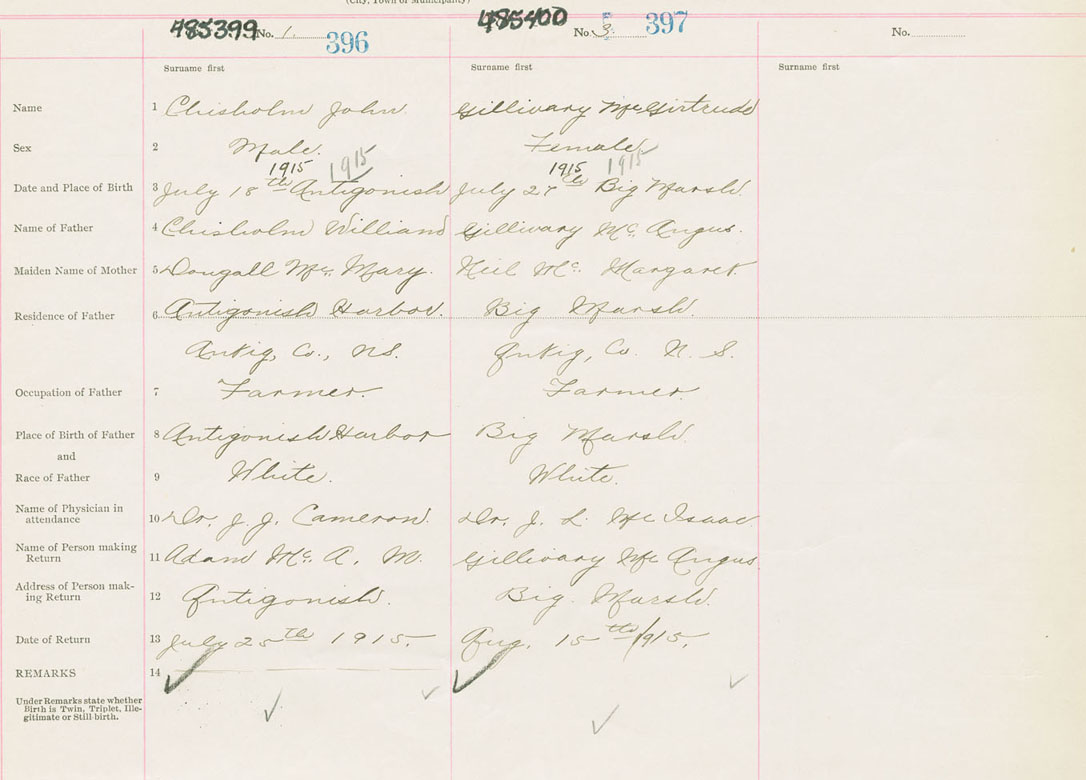 (City, Town or Municipality)
485399 No. 1. 396
485400 No. 3. 5 397
No.
Surname first Surname first Surname first
Name 1 Chisholm John. Gillivary Mc Girtrude
Sex 2 Male. Female
1915 1915 1915 1915
Date and Place of Birth 3 July 18th Antigonish July 27th Big Marsh.
Name of Father 4 Chisholm William Gillivary Mc. Angus.
Maiden Name of Mother 5 Dougall Mc. Mary. Neil Mc. Margaret.
Residence of Father 6 Antigonish Harbor. Big Marsh.
Antig, Co., NS. Antig, Co. N. S.
Occupation of Father 7 Farmer. Farmer.
Place of Birth of Father 8 Antigonish Harbor Big Marsh.
and
Race of Father 9 White. White.
Name of Physician in
attendance 10 Dr. J. J. Cameron. Dr. J. L. Mc Isaac
Name of Person making
Return 11 Adam Mc. A. M. Gillivary Mc Angus.
Address of Person mak-
ing Return 12 Antigonish. Big. Marsh.
Date of Return 13 July 25th 1915. Aug. 15th 1915.
REMARKS 14
Under Remarks state whether
Birth is Twin, Triplet, Ille-
gitimate or Still birth.